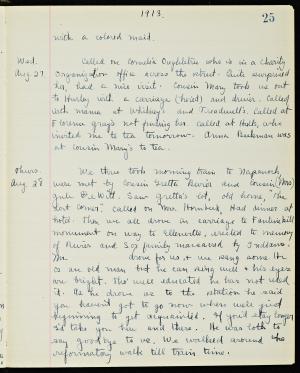 1913.
25
with a colored maid.
Wed. Aug. 27 Called on Cornelia who is in a Charity
Organization office across the street. Quite surprised
her, had a nice visit. Cousin Mary took us out
to Hurley with a carriage (hired) and driver. Called
with mama at Whitney's and Treadwell's. Called at
Florence Gray's not finding her. Called at Half, who
invited me to tea tomorrow. Anna Beekman was
at cousin Mary's to tea.
Thurs. Aug 28 We three took morning train to Napanoch,
were met by cousin Gretta Bevier and cousin (Mrs)
Jule DeWitt. Saw Gretta's lot, old home, "The
Lost Corner", called on Mrs. Hornbeck, Had dinner at
hotel. Then we all drove in carriage to Fantinekill
monument on way to Ellenville, erected to memory
of Bevier and Sax family massacred by Indians.
Mr. drove for us, & we sang some. He
is an old man but he can sing well & his eyes
are bright. Tho' well educated he has not used
it. As he drove us to the station he said
you haven't got to go now when we're just
beginning to get acquainted. If you'd stay longer
I'd take you here and there. He was loth to
say goodbye to us. We walked around the
reformatory walk till train time.